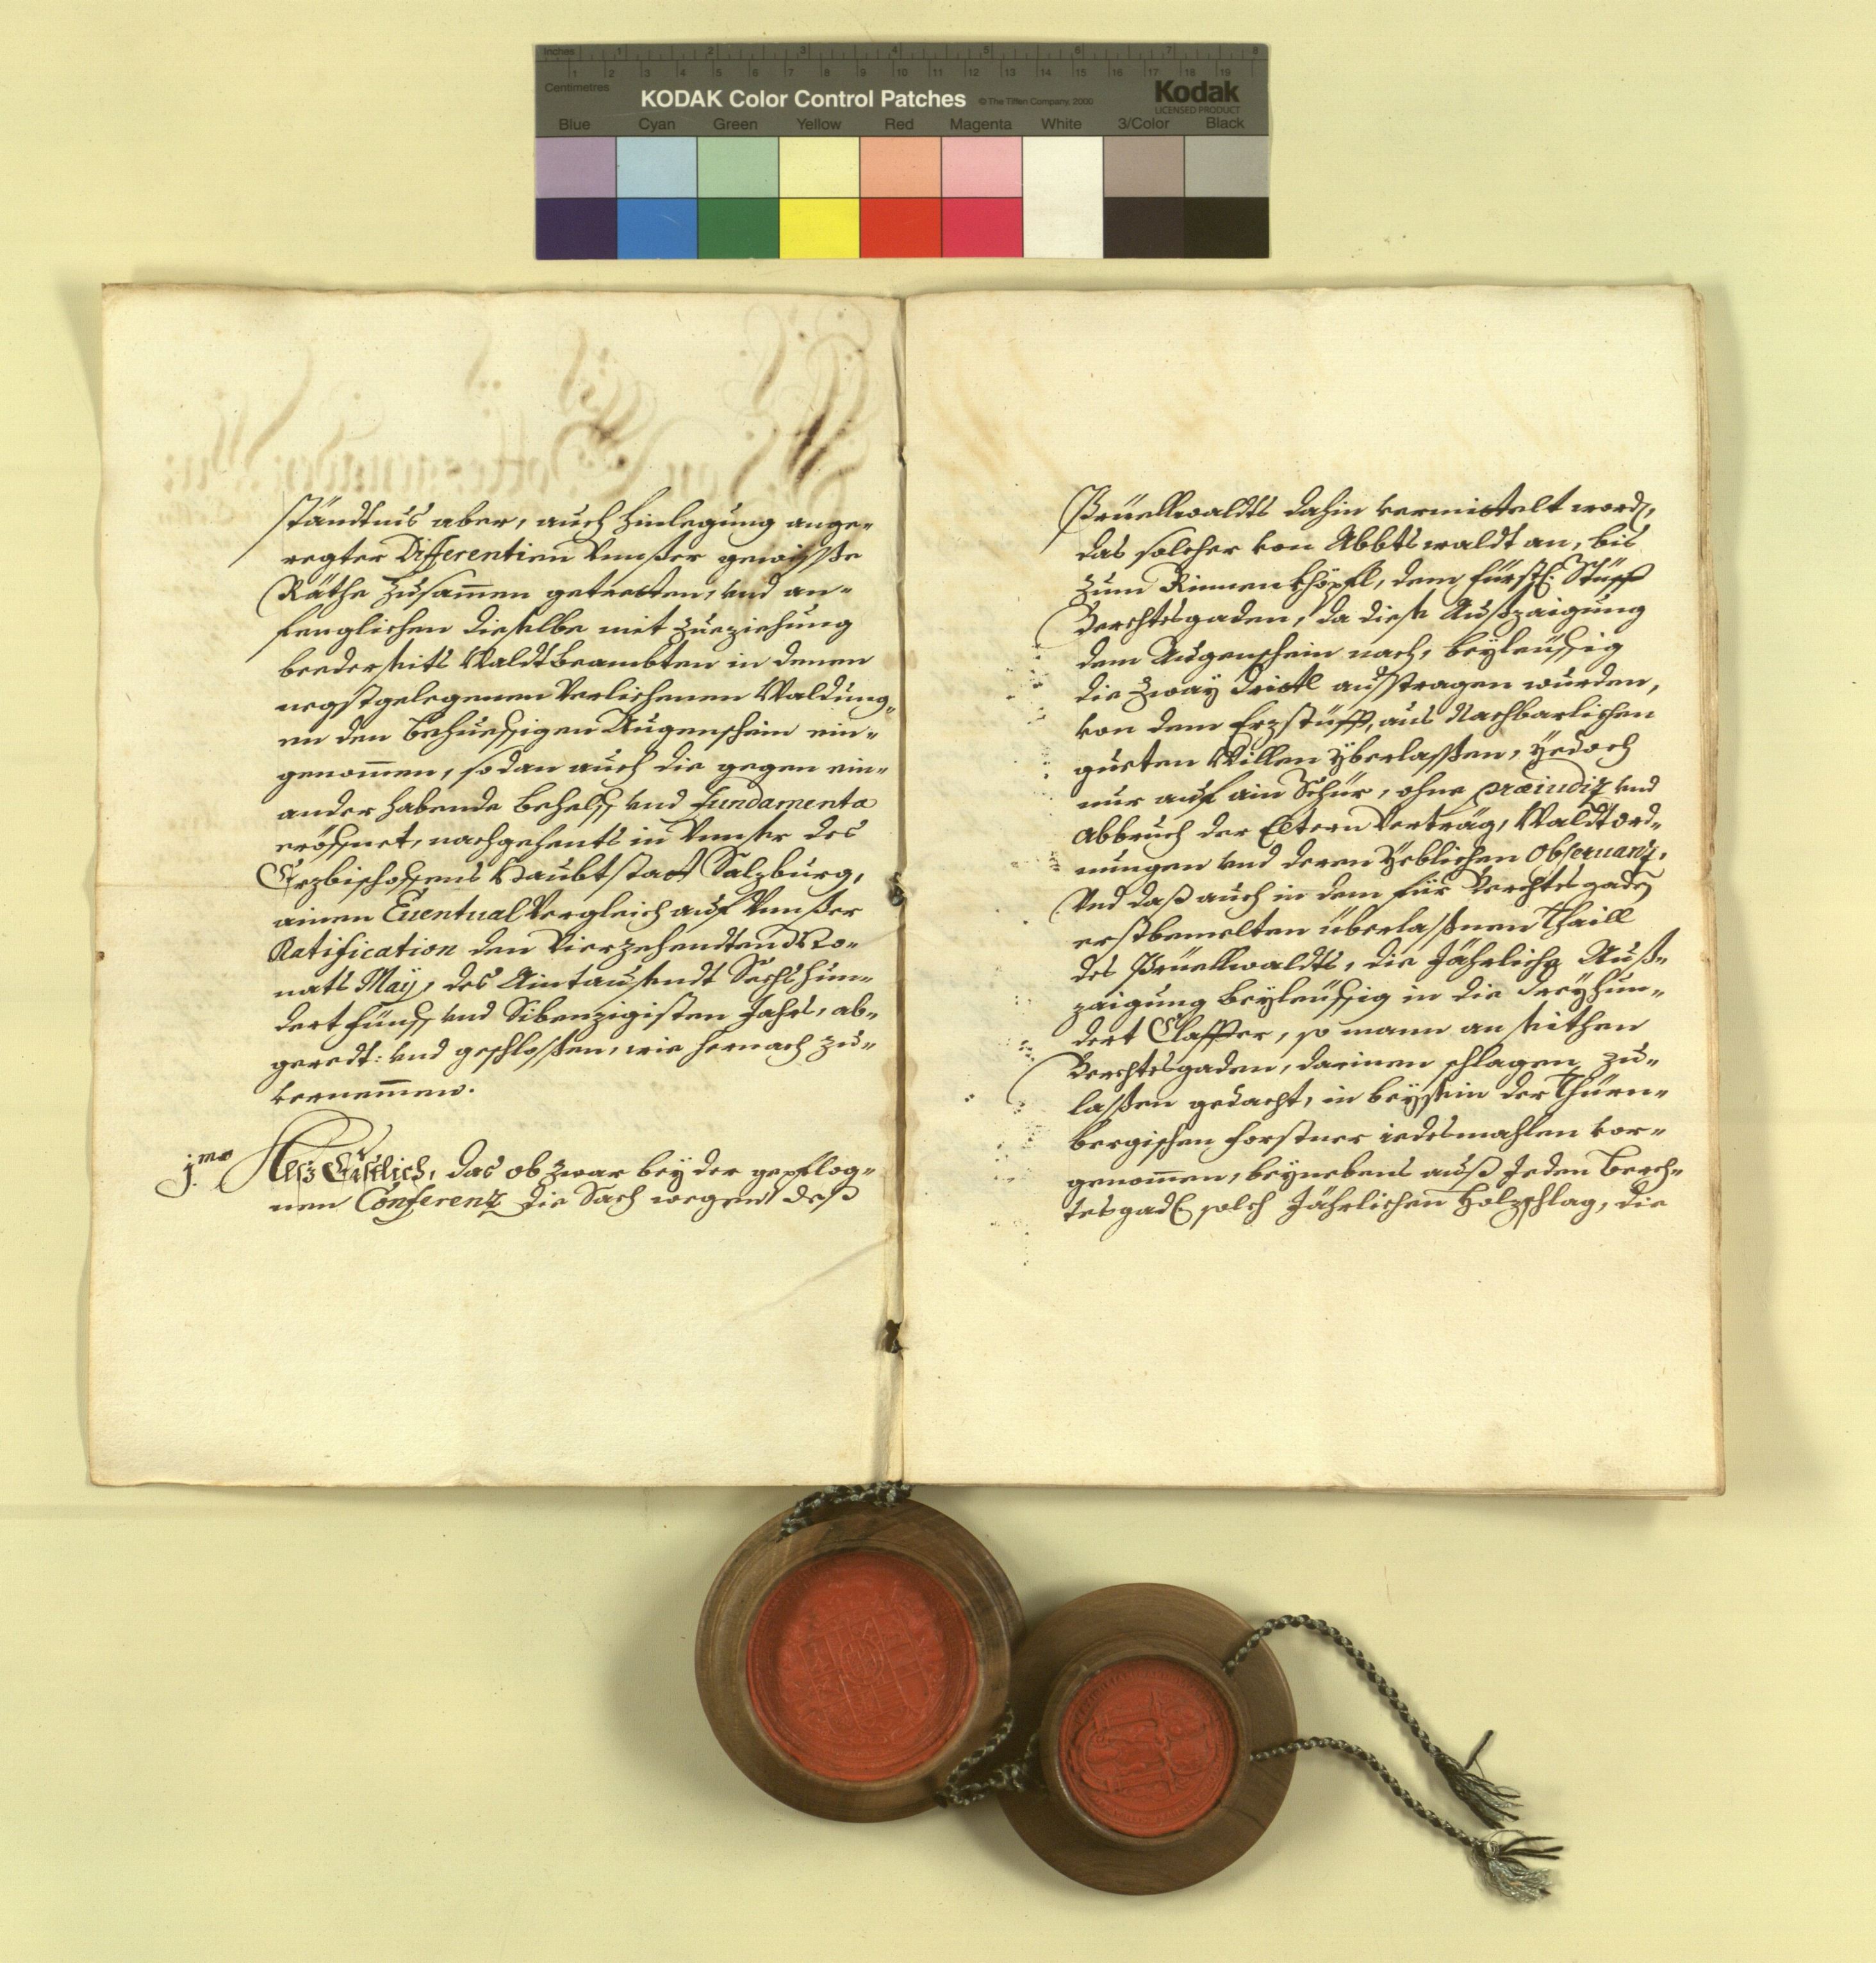 Inches 1 2 3 4 5 6 7 8
1 2 3 4 5 6 7 8 9 10 11 12 13 14 15 16 17 18 19
Centimetres
KODAK Color Control Patches © The Tiffen Company, 2000 Kodak
LICENSED PRODUCT
Blue Cyan Green Yellow Red Magenta White 3/Color Black
ständtnus aber, auch hinlegung ange-
regter Differentien Vnnßer gewisse
Räthe zusam̄en getretten, vnd an-
fenglichen dieselbe mit zueziehung
beederseits Waldtbeambten in denen
negstgelegenen Verlichenen Waldung-
en den behueffigen Augenschein ein-
genom̄en, sodan auch die gegen ein-
ander habende behelff vnd Fundamenta
eröffnet, nachgehents in Vnnser des
Erzbischoffens Haubtstatt Salzburg,
ainen Euentual Vergleich auf Vnnßer
Ratification den Vierzehendten Mo-
nats Maÿ, des Aintausendt Sechshun-
dert fünff vnd Sibenzigisten Jahrs, ab-
geredt: vnd geschlossen, wie hernach zu-
vernem̄en.
j.mo Alß Erstlich, das ob zwar beÿ der gepflog-
nen Conferenz die Sach wegen deß
Prüellwaldts dahin vermittelt word,
das solcher von Abbtswaldt an, bis
zum Rinnenkhöpfl, dem Fürstl: Stüfft
Berchtesgaden, da diese Außzaigung
dem Augenschein nach, beÿleüffig
die zwaÿ drittl austragen wurden,
von dem Erzstüfft, aus Nachbarlichen
gueten Willen yberlassen, yedoch
nur auf ain Schür, ohne præiudiz vnd
Abbruch der Eltern Verträg, Waldtord-
nungen vnd deren yeblichen Obseruanz,
Vnd daß auch in dem für Berchtesgaden
erstbemelten überlaßnen Thaill
des Prüellwaldts, die Jährliche Auß-
zaigung beÿleüffig in die dreÿhun-
dert Claffter, so mann an seithen
Berchtesgaden, darinen schlagen zu-
lassen gedacht, in beÿsein der Thürn-
bergischen Forstner iedesmahlen vor-
genom̄en, beynebens auß Jeden Berch-
tesgad. solch Jährlichen Holzschlag, die